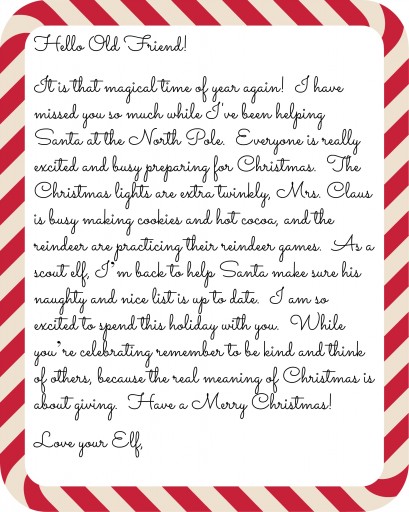 Hello Old Friend!
It is that magical time of year again! I have
missed you so much while I've been helping
Santa at the North Pole. Everyone is really
excited and busy preparing for Christmas. The
Christmas lights are extra twinkly, Mrs. Claus
is busy making cookies and hot cocoa, and the
reindeer are practicing their reindeer games. As a
scout elf, I'm back to help Santa make sure his
naughty and nice list is up to date. I am so
excited to spend this holiday with you. While
you're celebrating remember to be kind and think
of others, because the real meaning of Christmas is
about giving. Have a Merry Christmas!
Love your Elf,